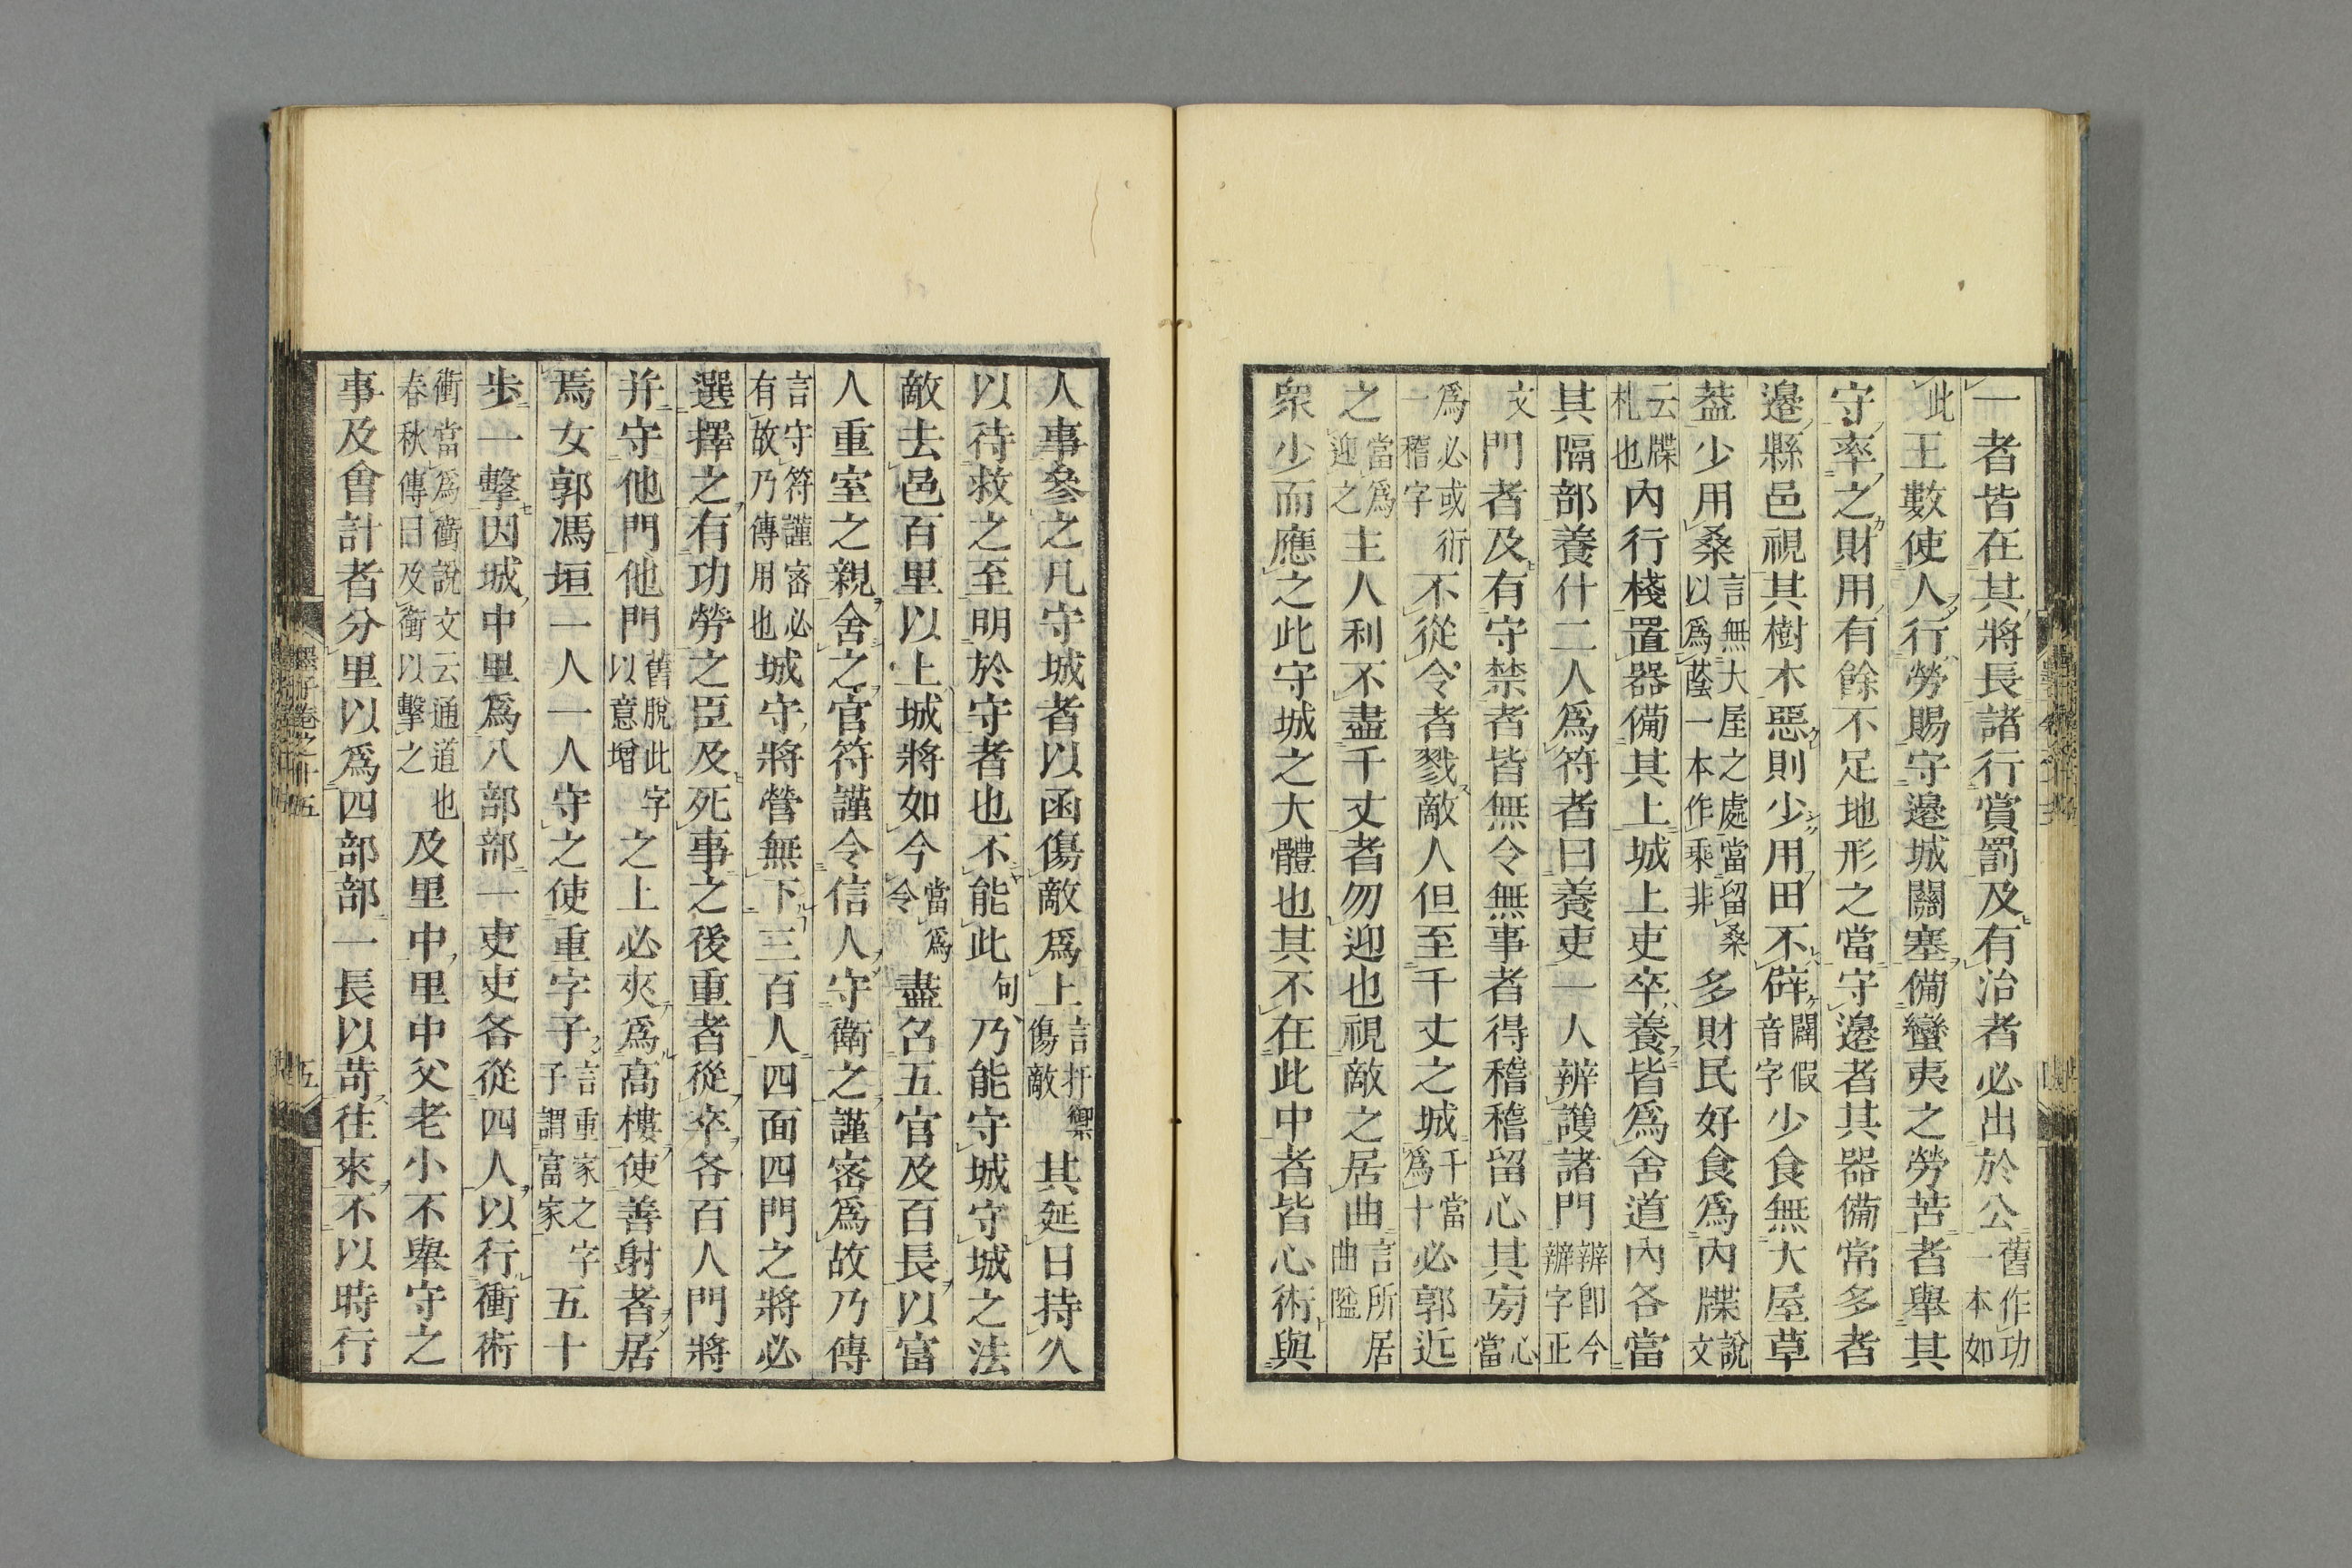 一者皆在其將長諸行賞罰及有治者必出於公舊作功一本如
此王數使人行勞賜守邊城關塞備蠻夷之勞苦者舉其
守率之財用有餘不足地形之當守邊者其器備常多者
邊縣邑視其樹木惡則少用田不辟闢假音字少食無大屋草
葢少用桑言無大屋之處當留桑以爲蔭一本作乘非多財民好食爲內牒說文
云牒札也內行棧置器備其上城上吏卒養皆爲舍道內各當
其隔部養什二人爲符者曰養吏一人辨護諸門辨即今辦字正
文門者及有守禁者皆無令無事者得稽稽留心其旁心當
爲必或術一稽字不從令者戮敵人但至千丈之城千當爲十必郭近
之當爲迎之主人利不盡千丈者勿迎也視敵之居曲言所居曲隘
衆少而應之此守城之大體也其不在此中者皆心術與
人事參之凡守城者以函傷敵爲上言扞禦傷敵其延日持久
以待救之至明於守者也不能此句乃能守城守城之法
敵去邑百里以上城將如今當爲令盡召五官及百長以富
人重室之親舍之官符謹令信人守衛之謹密爲故乃傳
言守符謹密必有故乃傳用也城守將營無下三百人四面四門之將必
選擇之有功勞之臣及死事之後重者從卒各百人門將
并守他門他門舊脫此字以意增之上必夾爲高樓使善射者居
焉女郭馮垣一人一人守之使重字子言重家之字子謂富家五十
步一擊因城中里爲八部部一吏吏各從四人以行衝術
衝當爲衝說文云通道也春秋傳曰及衝以擊之及里中里中父老小不舉守之
事及會計者分里以爲四部部一長以苛往來不以時行
墨子卷之十五
五